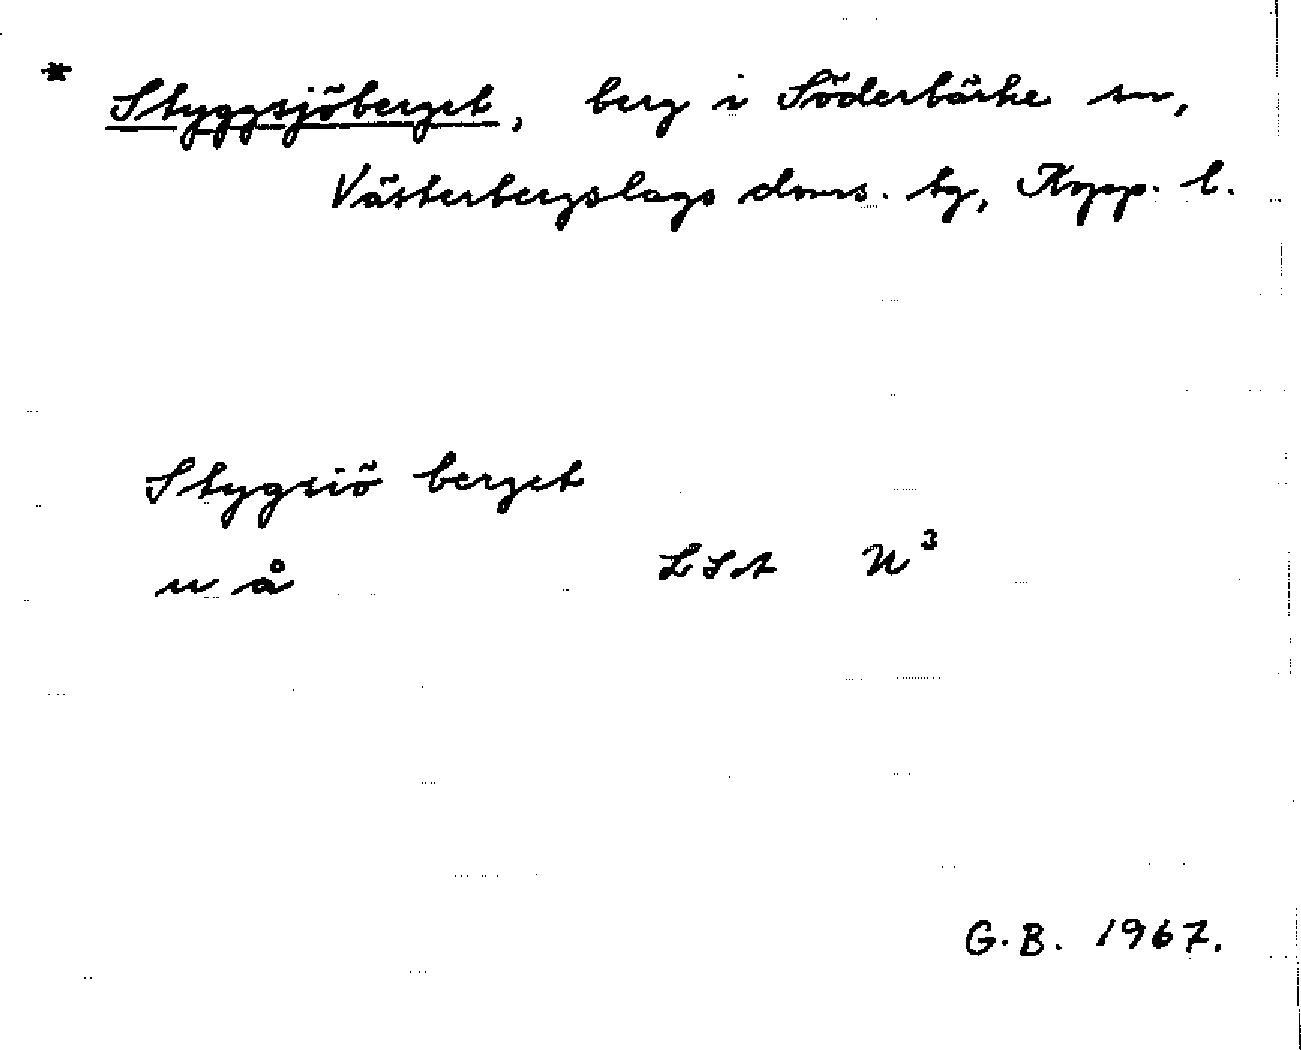 * Styggsjöberget, berg i Söderbärke sn,
Västerbergslags doms. tg, Kopp. l.
Stygsiö berget
u å LSA U³
G.B. 1967.